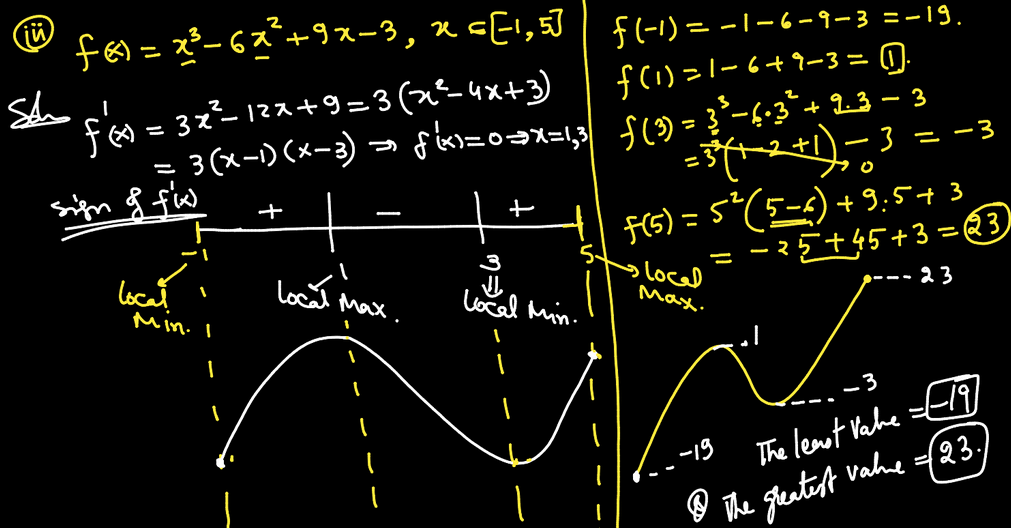 (iii) f(x) = x³ - 6x² + 9x - 3, x ∈ [-1, 5]
Soln f'(x) = 3x² - 12x + 9 = 3(x² - 4x + 3)
= 3(x-1)(x-3) ⇒ f'(x) = 0 ⇒ x = 1, 3
sign of f'(x) + - +
-1 1 3 5
Local Min. Local Max. Local Min. Local Max.
f(-1) = -1 - 6 - 9 - 3 = -19.
f(1) = 1 - 6 + 9 - 3 = 1.
f(3) = 3³ - 6·3² + 9·3 - 3
= 3³(1 - 2 + 1) - 3 = -3
0
f(5) = 5²(5-6) + 9·5 + 3
= -25 + 45 + 3 = 23
23
1
-3
-19
The least value = -19
& The greatest value = 23.